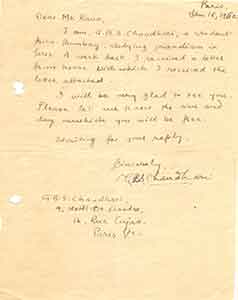 Paris
Jan 10, 1960
Dear Mr Rana,
I am G.B.S. Chaudhari, a student
from Bombay, studying journalism in
here. A week back I received a letter
from home with which I received the
letter attached.
I will be very glad to see you.
Please let me know the time and
day on which you will be free.
Waiting for your reply.
Sincerely
GBS Chaudhari
G.B.S. Chaudhari,
Rue Cujas,
Paris